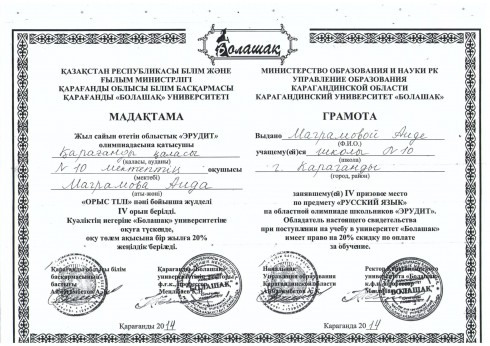 Болашақ
ҚАЗАҚСТАН РЕСПУБЛИКАСЫ БІЛІМ ЖӘНЕ
ҒЫЛЫМ МИНИСТРЛІГІ
ҚАРАҒАНДЫ ОБЛЫСЫ БІЛІМ БАСҚАРМАСЫ
ҚАРАҒАНДЫ «БОЛАШАҚ» УНИВЕРСИТЕТІ
МАДАҚТАМА
Жыл сайын өтетін облыстық «ЭРУДИТ»
олимпиадасына қатысушы
Қарағанды қаласы
(қаласы, ауданы)
N 10 мектептің оқушысы
(мектебі)
Маграмова Аида
(аты-жөні)
«ОРЫС ТІЛІ» пәні бойынша жүлделі
IV орын берілді.
Куәліктің негеріне «Болашақ» университетіне
оқуға түскенде,
оқу төлем ақысына бір жылға 20%
жеңілдік беріледі.
Қарағанды облысы білім
басқармасының
бастығы
Қарағанды «Болашақ»
Қарағанды 2014
МИНИСТЕРСТВО ОБРАЗОВАНИЯ И НАУКИ РК
УПРАВЛЕНИЕ ОБРАЗОВАНИЯ
КАРАГАНДИНСКОЙ ОБЛАСТИ
КАРАГАНДИНСКИЙ УНИВЕРСИТЕТ «БОЛАШАҚ»
ГРАМОТА
Выдано Маграмовой Аиде
(Ф.И.О.)
учащему(ей)ся школы N 10
(школа)
г Караганды
(город, район)
занявшему(ей) IV призовое место
по предмету «РУССКИЙ ЯЗЫК»
на областной олимпиаде школьников «ЭРУДИТ».
Обладатель настоящего свидетельства
при поступлении на учебу в университет «Болашақ»
имеет право на 20% скидку по оплате
за обучение.
Начальник
Управления образования
Карагандинской области
Ректор Карагандинского
университета «Болашақ»
к.ф.н., профессор
БОЛАШАҚ
Караганда 2014